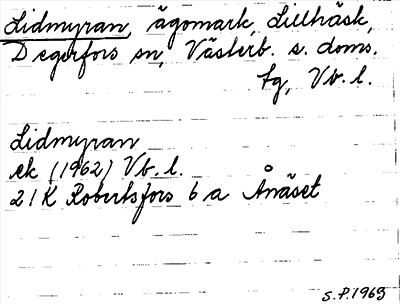 Lidmyran, ägomark, Lillträsk,
Degerfors sn, Västerb. s. doms.
tg, Vb. l.
Lidmyran
ek (1962) Vb. l.
21K Robertsfors 6 a Ånäset
S.P. 1969